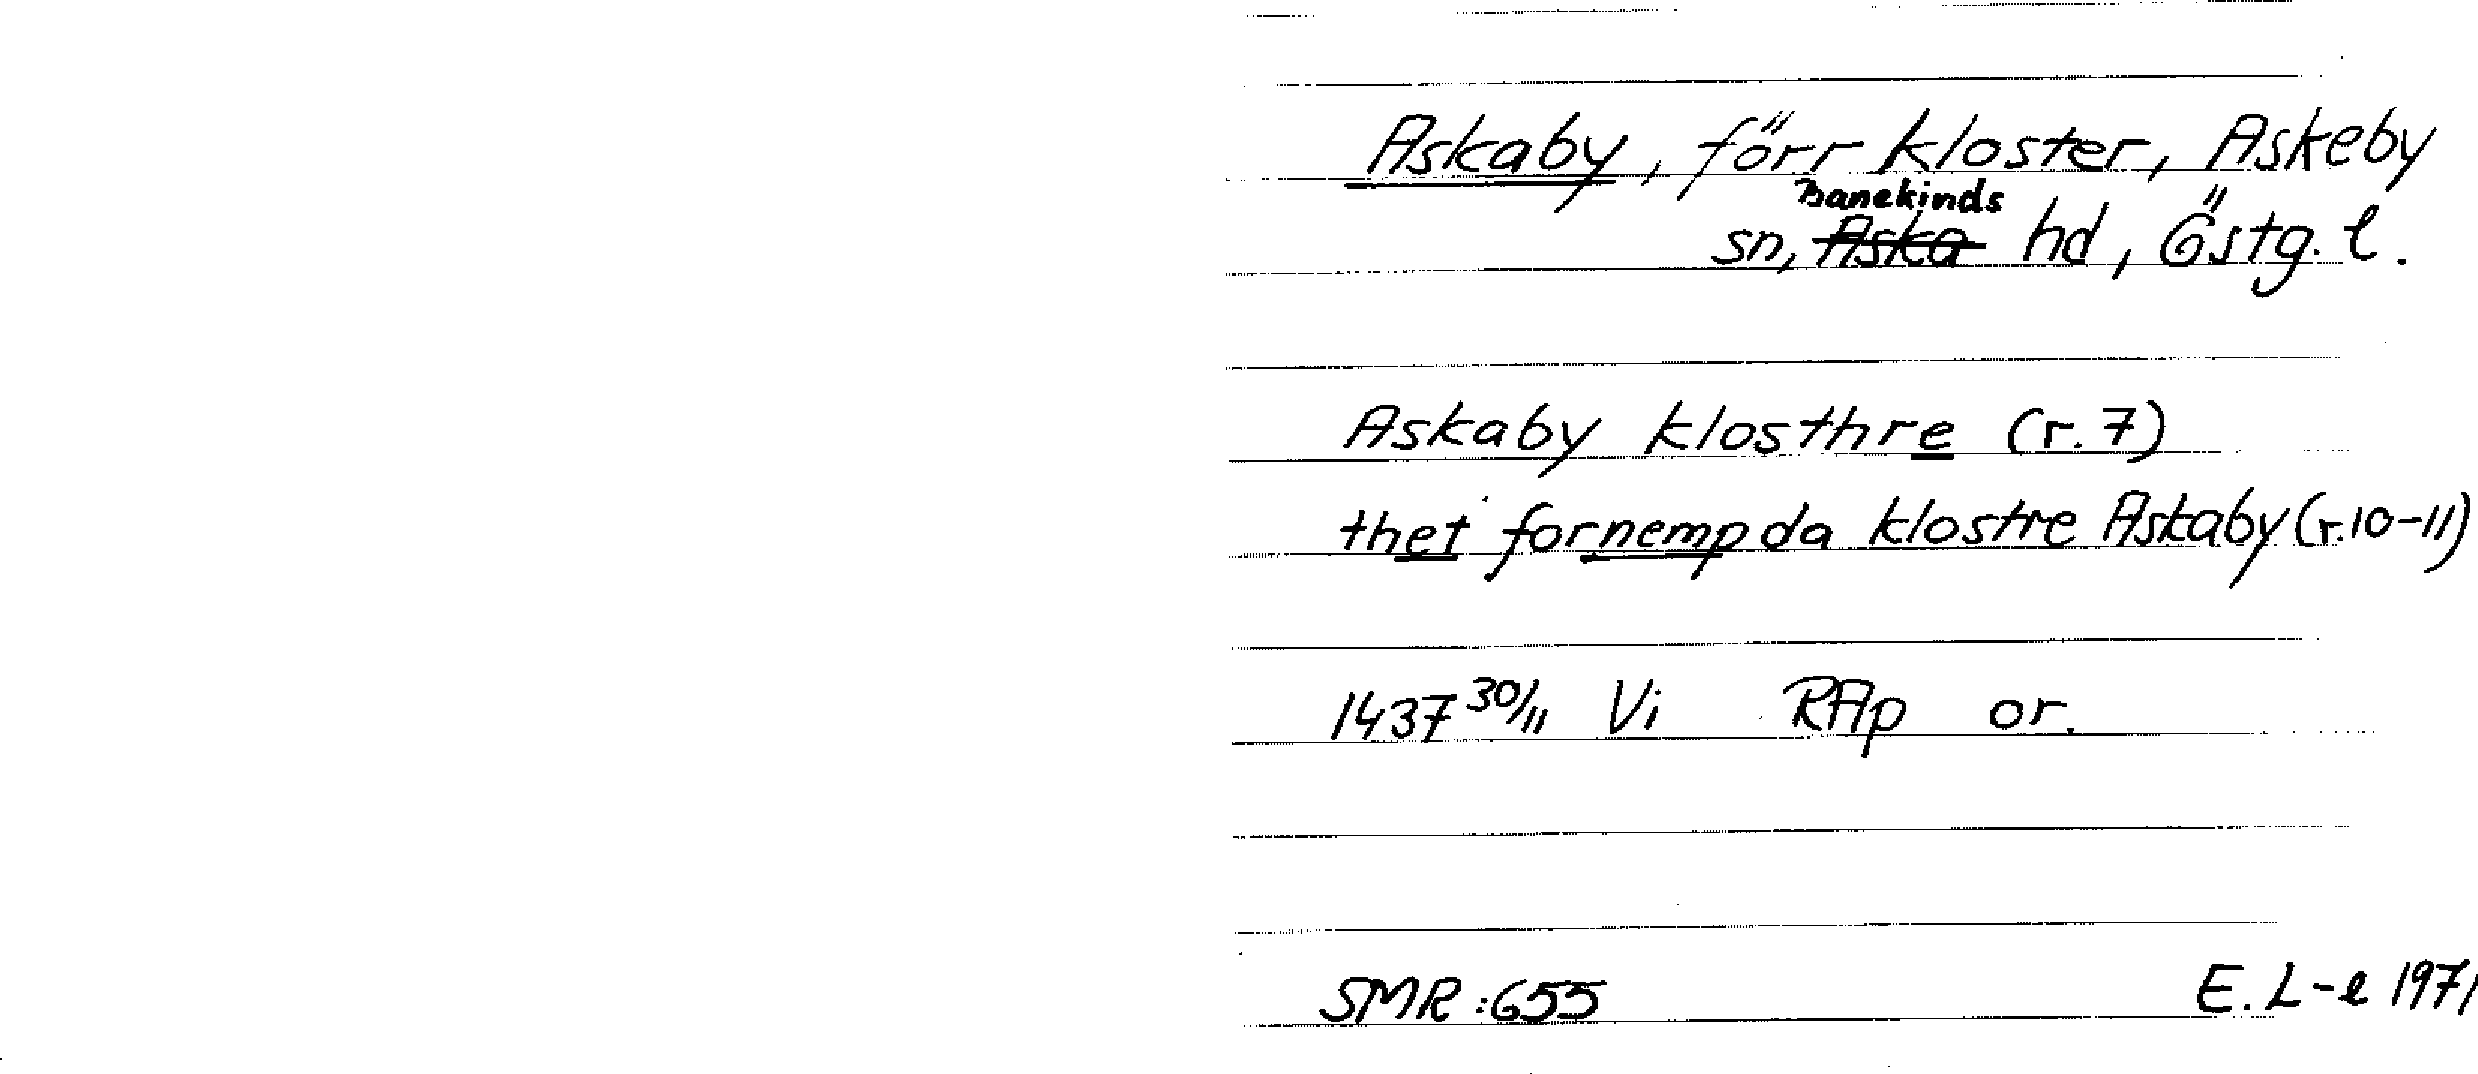 Askaby, förr kloster, Askeby
Banekinds
sn, Aska hd, Östg. l.
Askaby klosthre (r. 7)
thet fornempda klostre Askaby (r. 10-11)
1437 30/11 Vi RAp or.
SMR: 655 E. L-e 1971